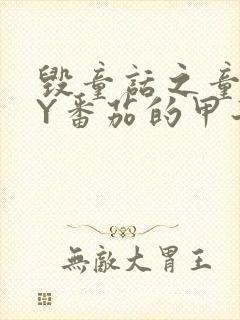 毁童话之童
Y番茄的甲
無敵大胃王